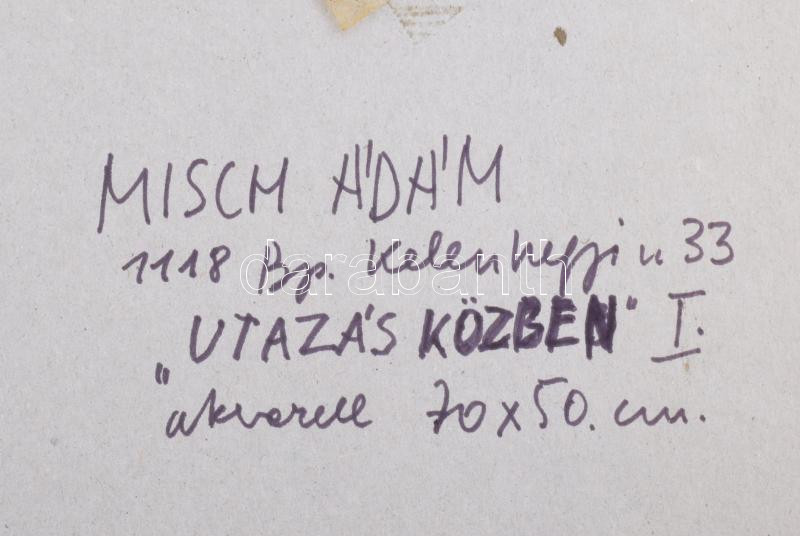 MISCH ÁDÁM
1118 Bp. Kelenhegyi u 33
„UTAZÁS KÖZBEN" I.
akvarell 70x50. cm.
darabanth